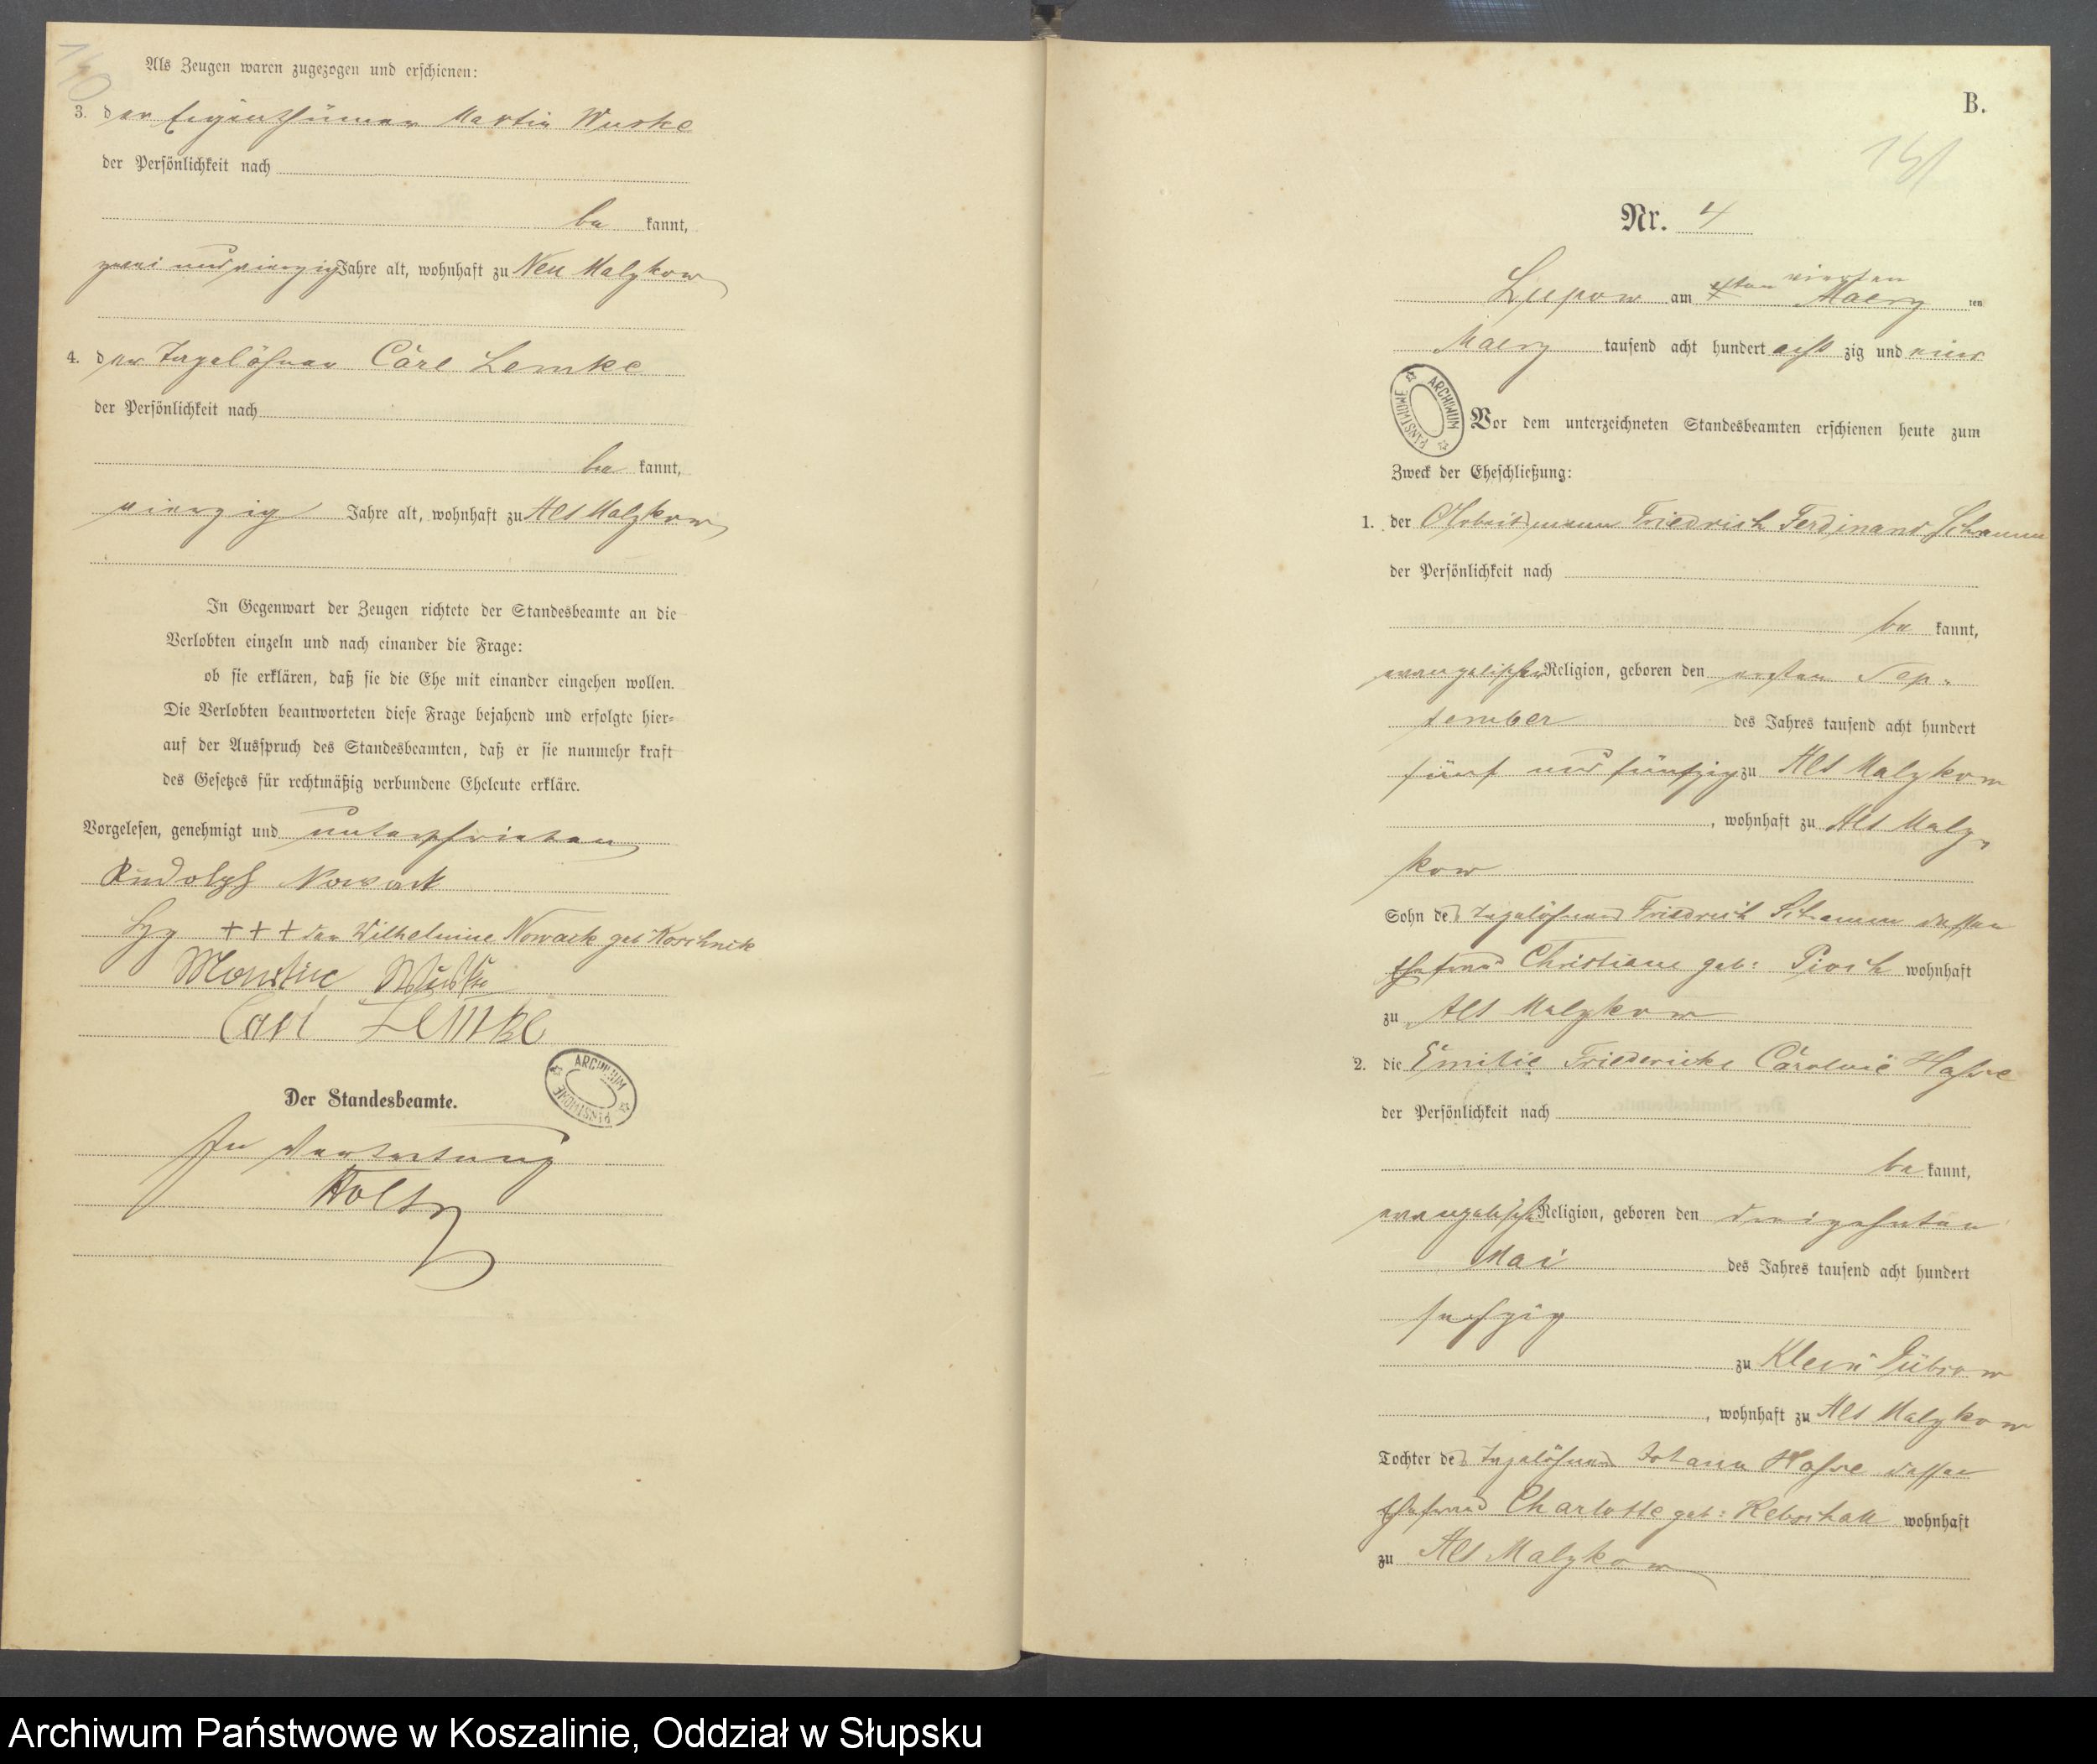 140
Als Zeugen waren zugezogen und erschienen:
3. der Eigenthümer Martin Wuske
der Persönlichkeit nach
be kannt,
zwei und vierzig Jahre alt, wohnhaft zu Neu Malzkow
4. der Tagelöhner Carl Lemke
der Persönlichkeit nach
be kannt,
vierzig Jahre alt, wohnhaft zu Alt Malzkow
In Gegenwart der Zeugen richtete der Standesbeamte an die
Verlobten einzeln und nach einander die Frage:
ob sie erklären, daß sie die Ehe mit einander eingehen wollen.
Die Verlobten beantworteten diese Frage bejahend und erfolgte hier=
auf der Ausspruch des Standesbeamten, daß er sie nunmehr kraft
des Gesetzes für rechtmäßig verbundene Eheleute erkläre.
Vorgelesen, genehmigt und unterschrieben
Rudolph Nowack
Hz +++ der Wilhelmine Nowack geb Koschnick
Martin Wuske
Carl Lemke
Der Standesbeamte.
ARCHIWUM PAŃSTWOWE
In Vertretung
Holtz
B.
141
Nr. 4
vierten
Lupow am Maerz ten
Maerz tausend acht hundert acht zig und eins
ARCHIWUM PAŃSTWOWE
Vor dem unterzeichneten Standesbeamten erschienen heute zum
Zweck der Eheschließung:
1. der Arbeitsmann Friedrich Ferdinand Schramm
der Persönlichkeit nach
be kannt,
evangelischer Religion, geboren den ersten Sep=
tember des Jahres tausend acht hundert
fünf und fünfzig zu Alt Malzkow
, wohnhaft zu Alt Malz=
kow
Sohn des Tagelöhners Friedrich Schramm dessen
Ehefrau Christiane geb: Pioch wohnhaft
zu Alt Malzkow
2. die Emilie Friedericke Caroline Hasse
der Persönlichkeit nach
be kannt,
evangelischer Religion, geboren den dreizehnten
Mai des Jahres tausend acht hundert
sechzig
zu Klein Gübrow
, wohnhaft zu Alt Malzkow
Tochter des Tagelöhners Johann Hasse dessen
Ehefrau Charlotte geb: wohnhaft
zu Alt Malzkow
Archiwum Państwowe w Koszalinie, Oddział w Słupsku